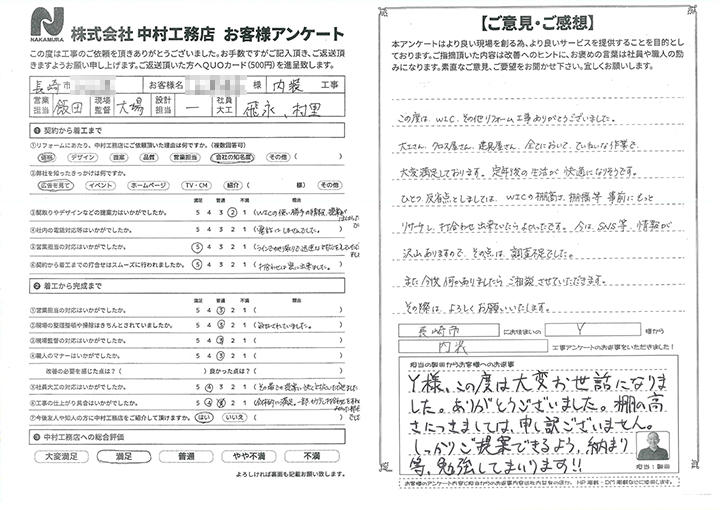 NAKAMURA
株式会社 中村工務店 お客様アンケート
この度は工事のご依頼を頂きありがとうございました。お手数ですがご記入頂き、ご返送頂
きますようお願い申し上げます。ご返送頂いた方へQUOカード(500円)を進呈致します。
長崎市 お客様名 様 内装 工事
営業担当 飯田 現場監督 大場 設計担当 ー 社員大工 飛永、村里
❶ 契約から着工まで
①リフォームにあたり、中村工務店にご依頼頂いた理由は何ですか。(複数回答可)
価格 デザイン 提案 品質 営業担当 会社の知名度 その他( )
②弊社を知ったきっかけは何ですか。
広告を見て イベント ホームページ TV・CM 紹介( 様) その他
満足 普通 不満 理由
③間取りやデザインなどの提案力はいかがでしたか。 5 4 3 2 1 (WICの使い勝手の情報、提案が
④社内の電話対応等はいかがでしたか。 5 4 3 2 1 (
⑤営業担当の対応はいかがでしたか。 5 4 3 2 1 (
⑥契約から着工までの打合せはスムーズに行われましたか。 5 4 3 2 1 (
❷ 着工から完成まで
満足 普通 不満 理由
①営業担当の対応はいかがでしたか。 5 4 3 2 1 ( )
②現場の整理整頓や掃除はきちんとされていましたか。 5 4 3 2 1 ( )
③現場監督の対応はいかがでしたか。 5 4 3 2 1 ( )
④職人のマナーはいかがでしたか。 5 4 3 2 1 ( )
改善の必要を感じた点は?( )良かった点は?( )
⑤社員大工の対応はいかがでしたか。 5 4 3 2 1 (
⑥工事の仕上り具合はいかがでしたか。 5 4 3 2 1 (
⑦今後友人や知人の方に中村工務店をご紹介して頂けますか。 はい いいえ ( )
❸ 中村工務店への総合評価
大変満足 満足 普通 やや不満 不満
よろしければ裏面も記載お願い致します。
【ご意見・ご感想】
本アンケートはより良い現場を創る為、より良いサービスを提供することを目的とし
ております。ご指摘頂いた内容は改善へのヒントに、お褒めの言葉は社員や職人の励
みになります。素直なご意見、ご要望をお聞かせ下さい。宜しくお願い致します。
この度は、WIC、その他リフォーム工事ありがとうございました。
大工さん、クロス屋さん、建具屋さん、全てにおいて、ていねいな作業で、
大変満足しております。定年後の生活が快適になりそうです。
ひとつ反省点としましては、WICの棚高さ、棚構等 事前にもっと
リサーチし、打合わせ出来ていたらよかったです。今は、SNS等、情報が
沢山ありますので、その点は、調査不足でした。
また今後 何かありましたら ご相談させていただきます。
その際は、よろしくお願いいたします。
長崎市 にお住まいの Y 様から
内装 工事アンケートのお返事をいただきました!
担当の飯田からお客様へのお返事
Y様、この度は大変お世話になりま
した。ありがとうございました。棚の高
さにつきましては、申し訳ございません。
しっかりご提案できるよう、納まり
等、勉強してまいります!!
担当:飯田